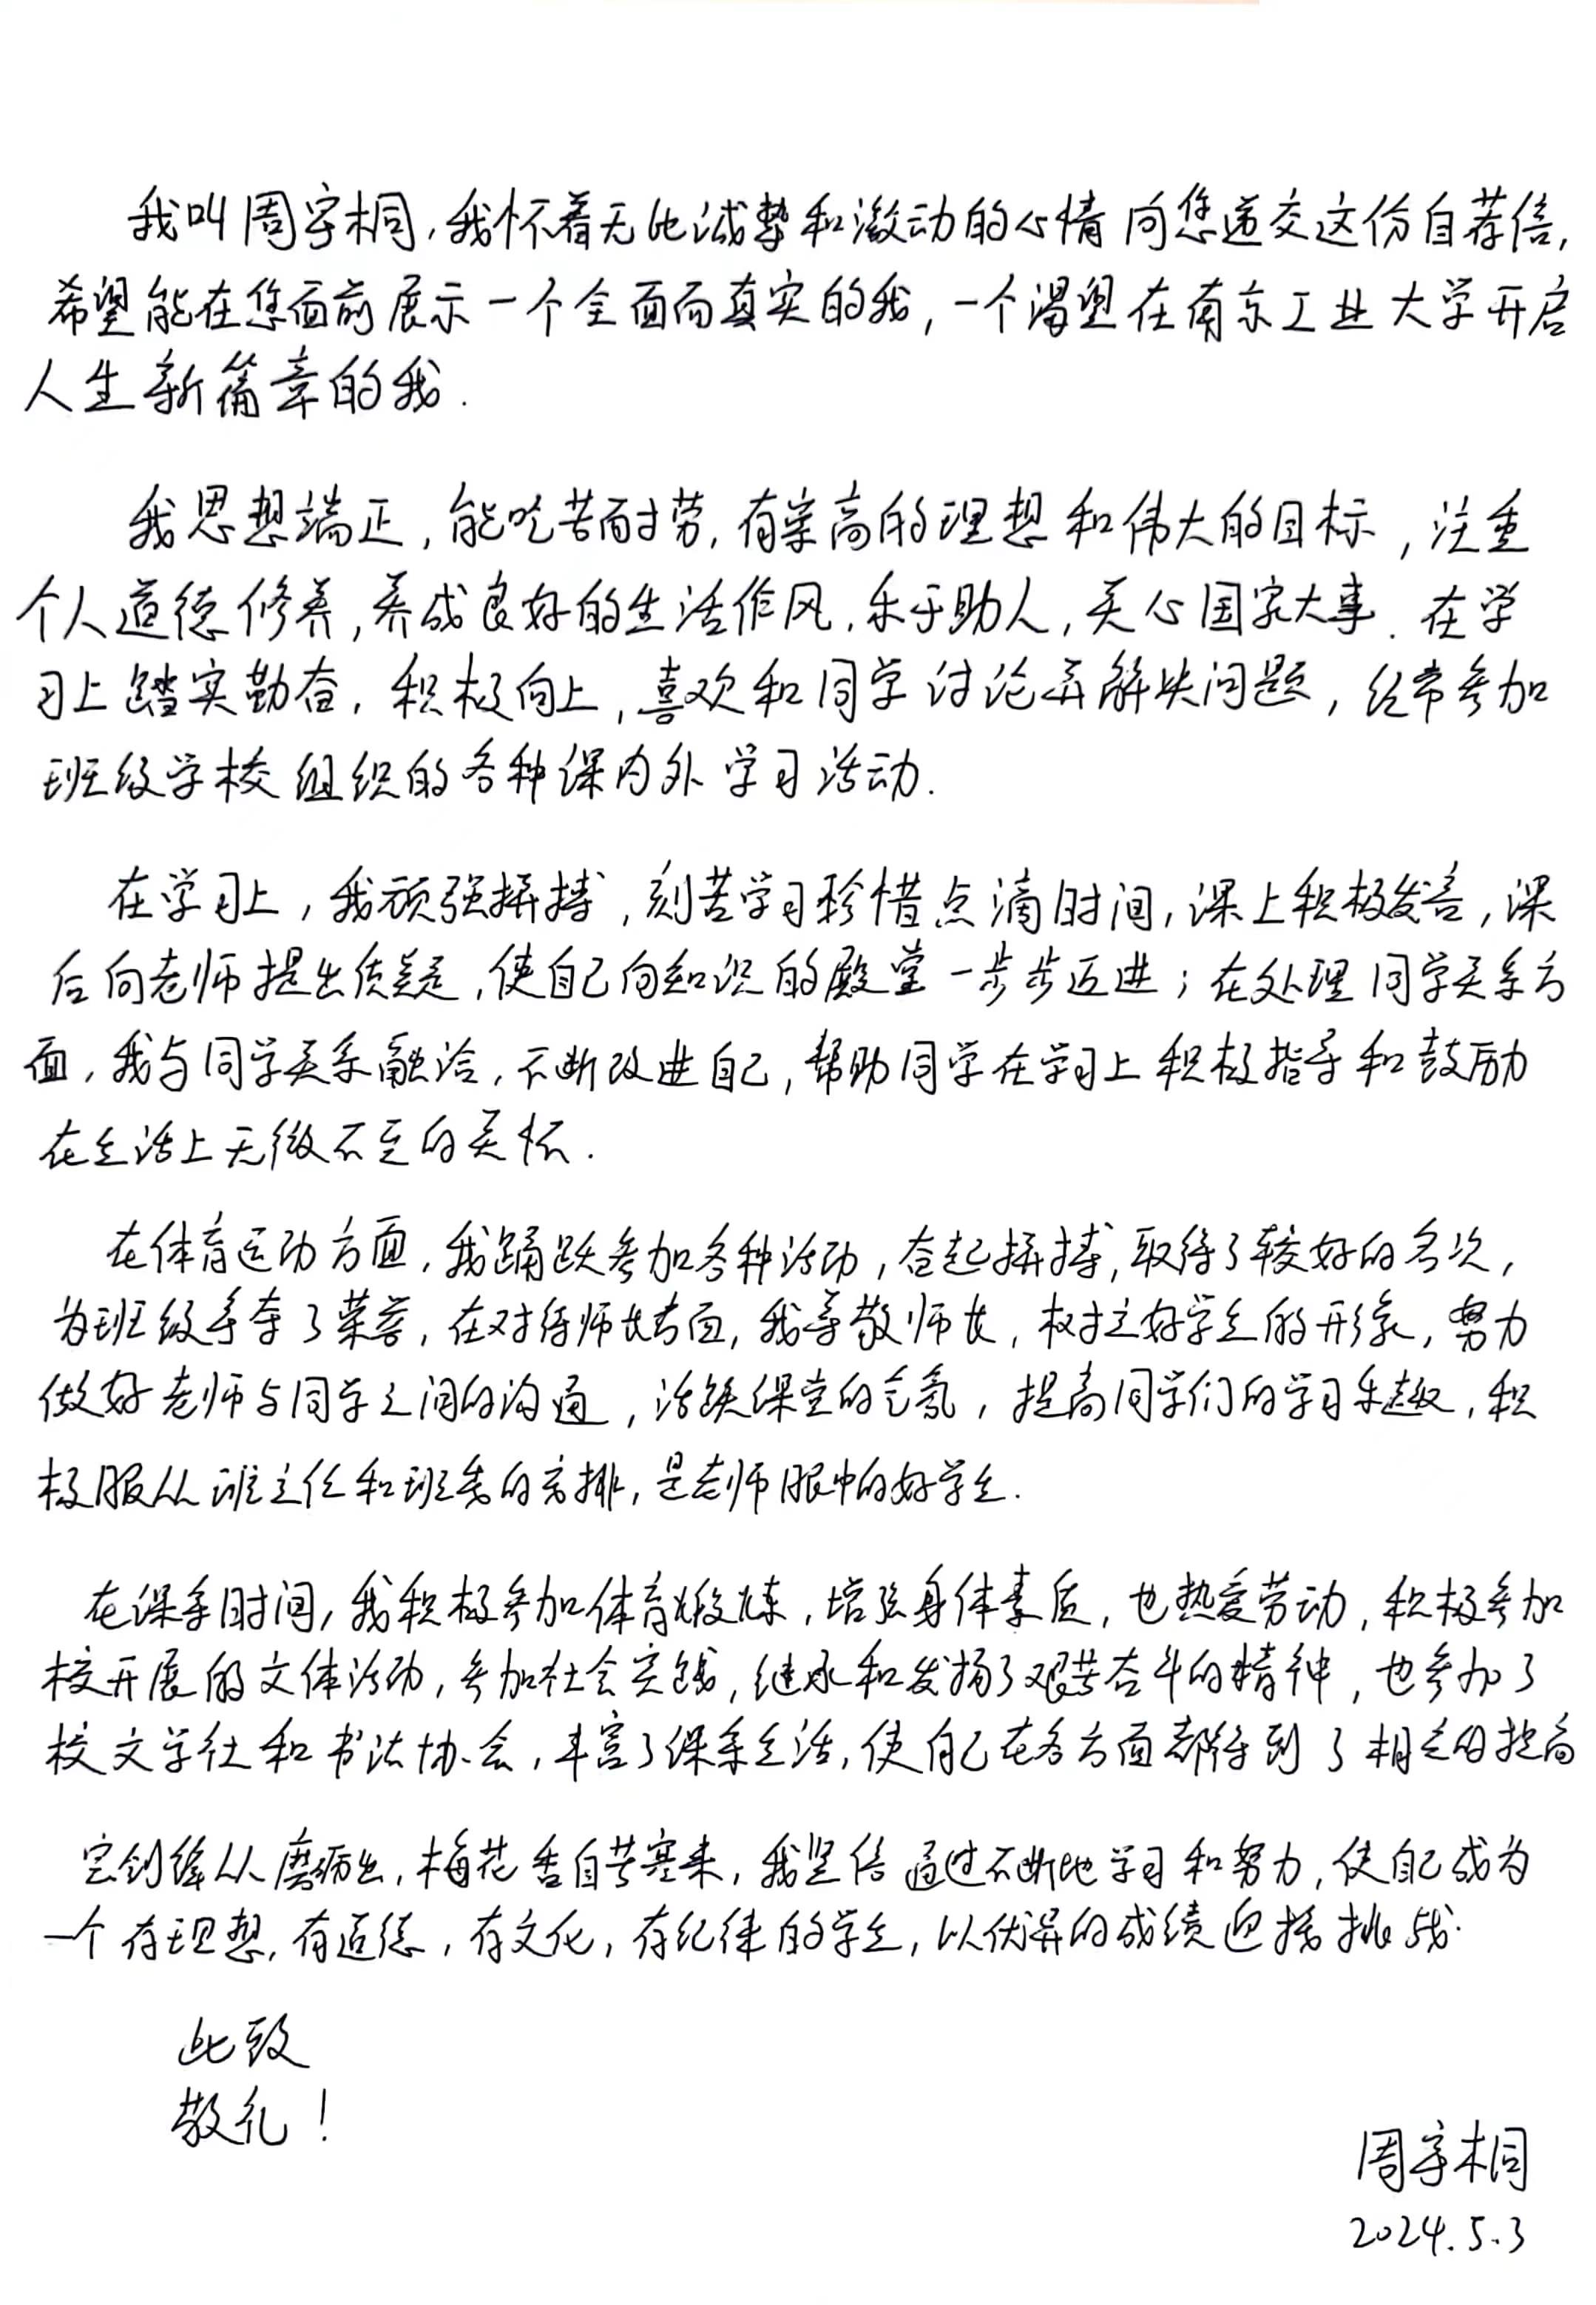 我叫周宇桐,我怀着无比诚挚和激动的心情向您递交这份自荐信,
希望能在您面前展示一个全面而真实的我,一个渴望在南京工业大学开启
人生新篇章的我.
我思想端正,能吃苦耐劳,有崇高的理想和伟大的目标,注重
个人道德修养,养成良好的生活作风,乐于助人,关心国家大事.在学
习上踏实勤奋,积极向上,喜欢和同学讨论并解决问题,经常参加
班级学校组织的各种课内外学习活动.
在学习上,我顽强拼搏,刻苦学习珍惜点滴时间,课上积极发言,课
后向老师提出质疑,使自己向知识的殿堂一步步迈进;在处理同学关系方
面,我与同学关系融洽,不断改进自己,帮助同学在学习上积极指导和鼓励
在生活上无微不至的关怀.
在体育运动方面,我踊跃参加各种活动,奋起拼搏,取得了较好的名次,
为班级争夺了荣誉,在对待师长方面,我尊敬师长,树立好学生的形象,努力
做好老师与同学之间的沟通,活跃课堂的气氛,提高同学们的学习乐趣,积
极服从班主任和班委的安排,是老师眼中的好学生.
在课余时间,我积极参加体育锻炼,增强身体素质,也热爱劳动,积极参加
校开展的文体活动,参加社会实践,继承和发扬了艰苦奋斗的精神,也参加了
校文学社和书法协会,丰富了课余生活,使自己在各方面都得到了相应的提高
宝剑锋从磨砺出,梅花香自苦寒来,我坚信通过不断地学习和努力,使自己成为
一个有理想,有道德,有文化,有纪律的学生,以优异的成绩迎接挑战.
此致
敬礼!
周宇桐
2024.5.3